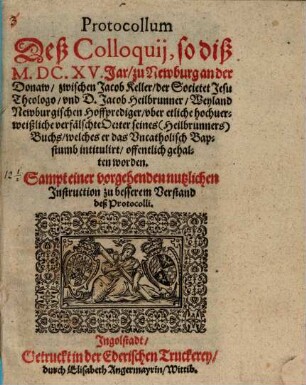 Protocollum
Deß Colloquij, so diß
M. DC. XV. Jar/ zu Newburg an der
Donaw/ zwischen Jacob Keller/ der Societet Jesu
Theologo/ vnd D. Jacob Heilbrunner/ Weyland
Newburgischen Hoffprediger/ vber etliche hochuer-
weißliche verfälschte Oerter seines (Heilbrunners)
Buchs/ welches er das Vncatholisch Bap-
stumb intitulirt/ offentlich gehal-
ten worden.
Sampt einer vorgehenden nutzlichen
Instruction zu besserem Verstand
deß Protocolli.
Ingolstadt/
Getruckt in der Ederischen Truckerey/
durch Elisabeth Angermayrin/ Wittib.